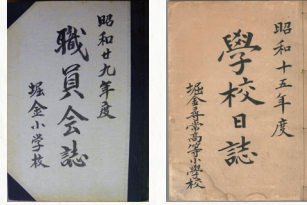 昭和廿九年度
職員会誌
堀金小学校
昭和十五年度
學校日誌
堀金尋常高等小學校